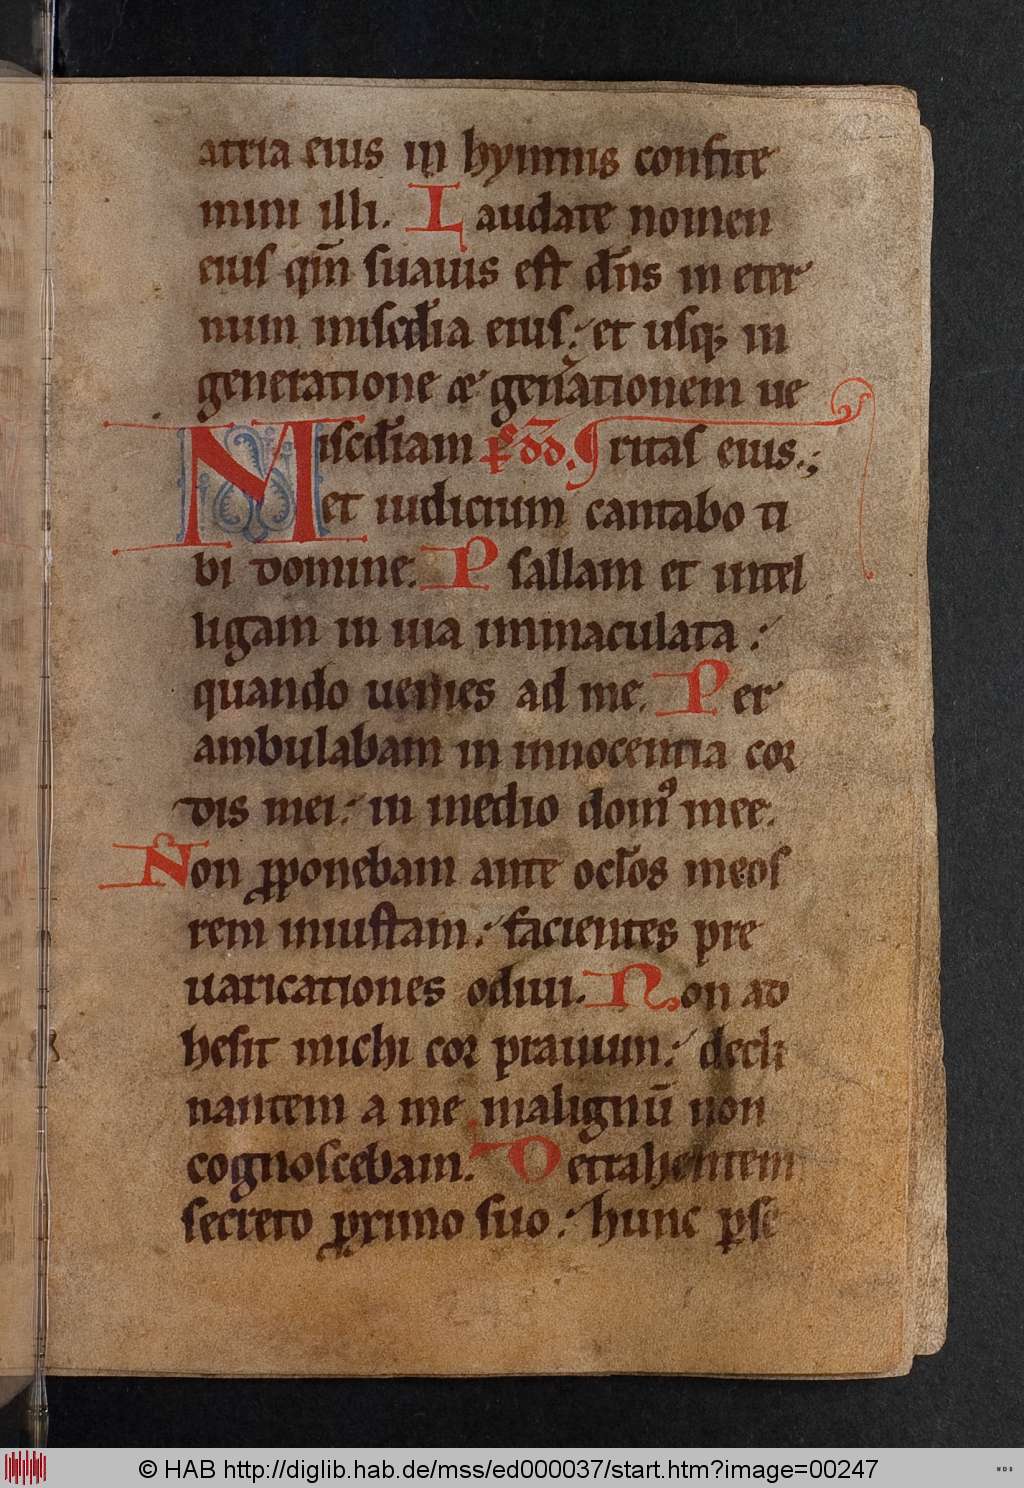 atria eius in hymnis confite
mini illi. Laudate nomen
eius qm̄ suauis est dn̄s in eter
num misc̄dia eius: et usq; in
generatione ⁊ gen̄ationem ue
Misc̄diam ritas eius.;
et iudicium cantabo ti
bi domine. Psallam et intel
ligam in uia immaculata:
quando uenies ad me. Per
ambulabam in innocentia cor
dis mei: in medio domꝰ mee.
Non ꝓponebam ante oc̄los meos
rem iniustam: facientes pre
uaricationes odiui. Non ad
hesit michi cor prauum: decli
nantem a me malignū non
cognoscebam. Detrahentem
secreto ꝓximo suo: hunc ꝑse
© HAB http://diglib.hab.de/mss/ed000037/start.htm?image=00247